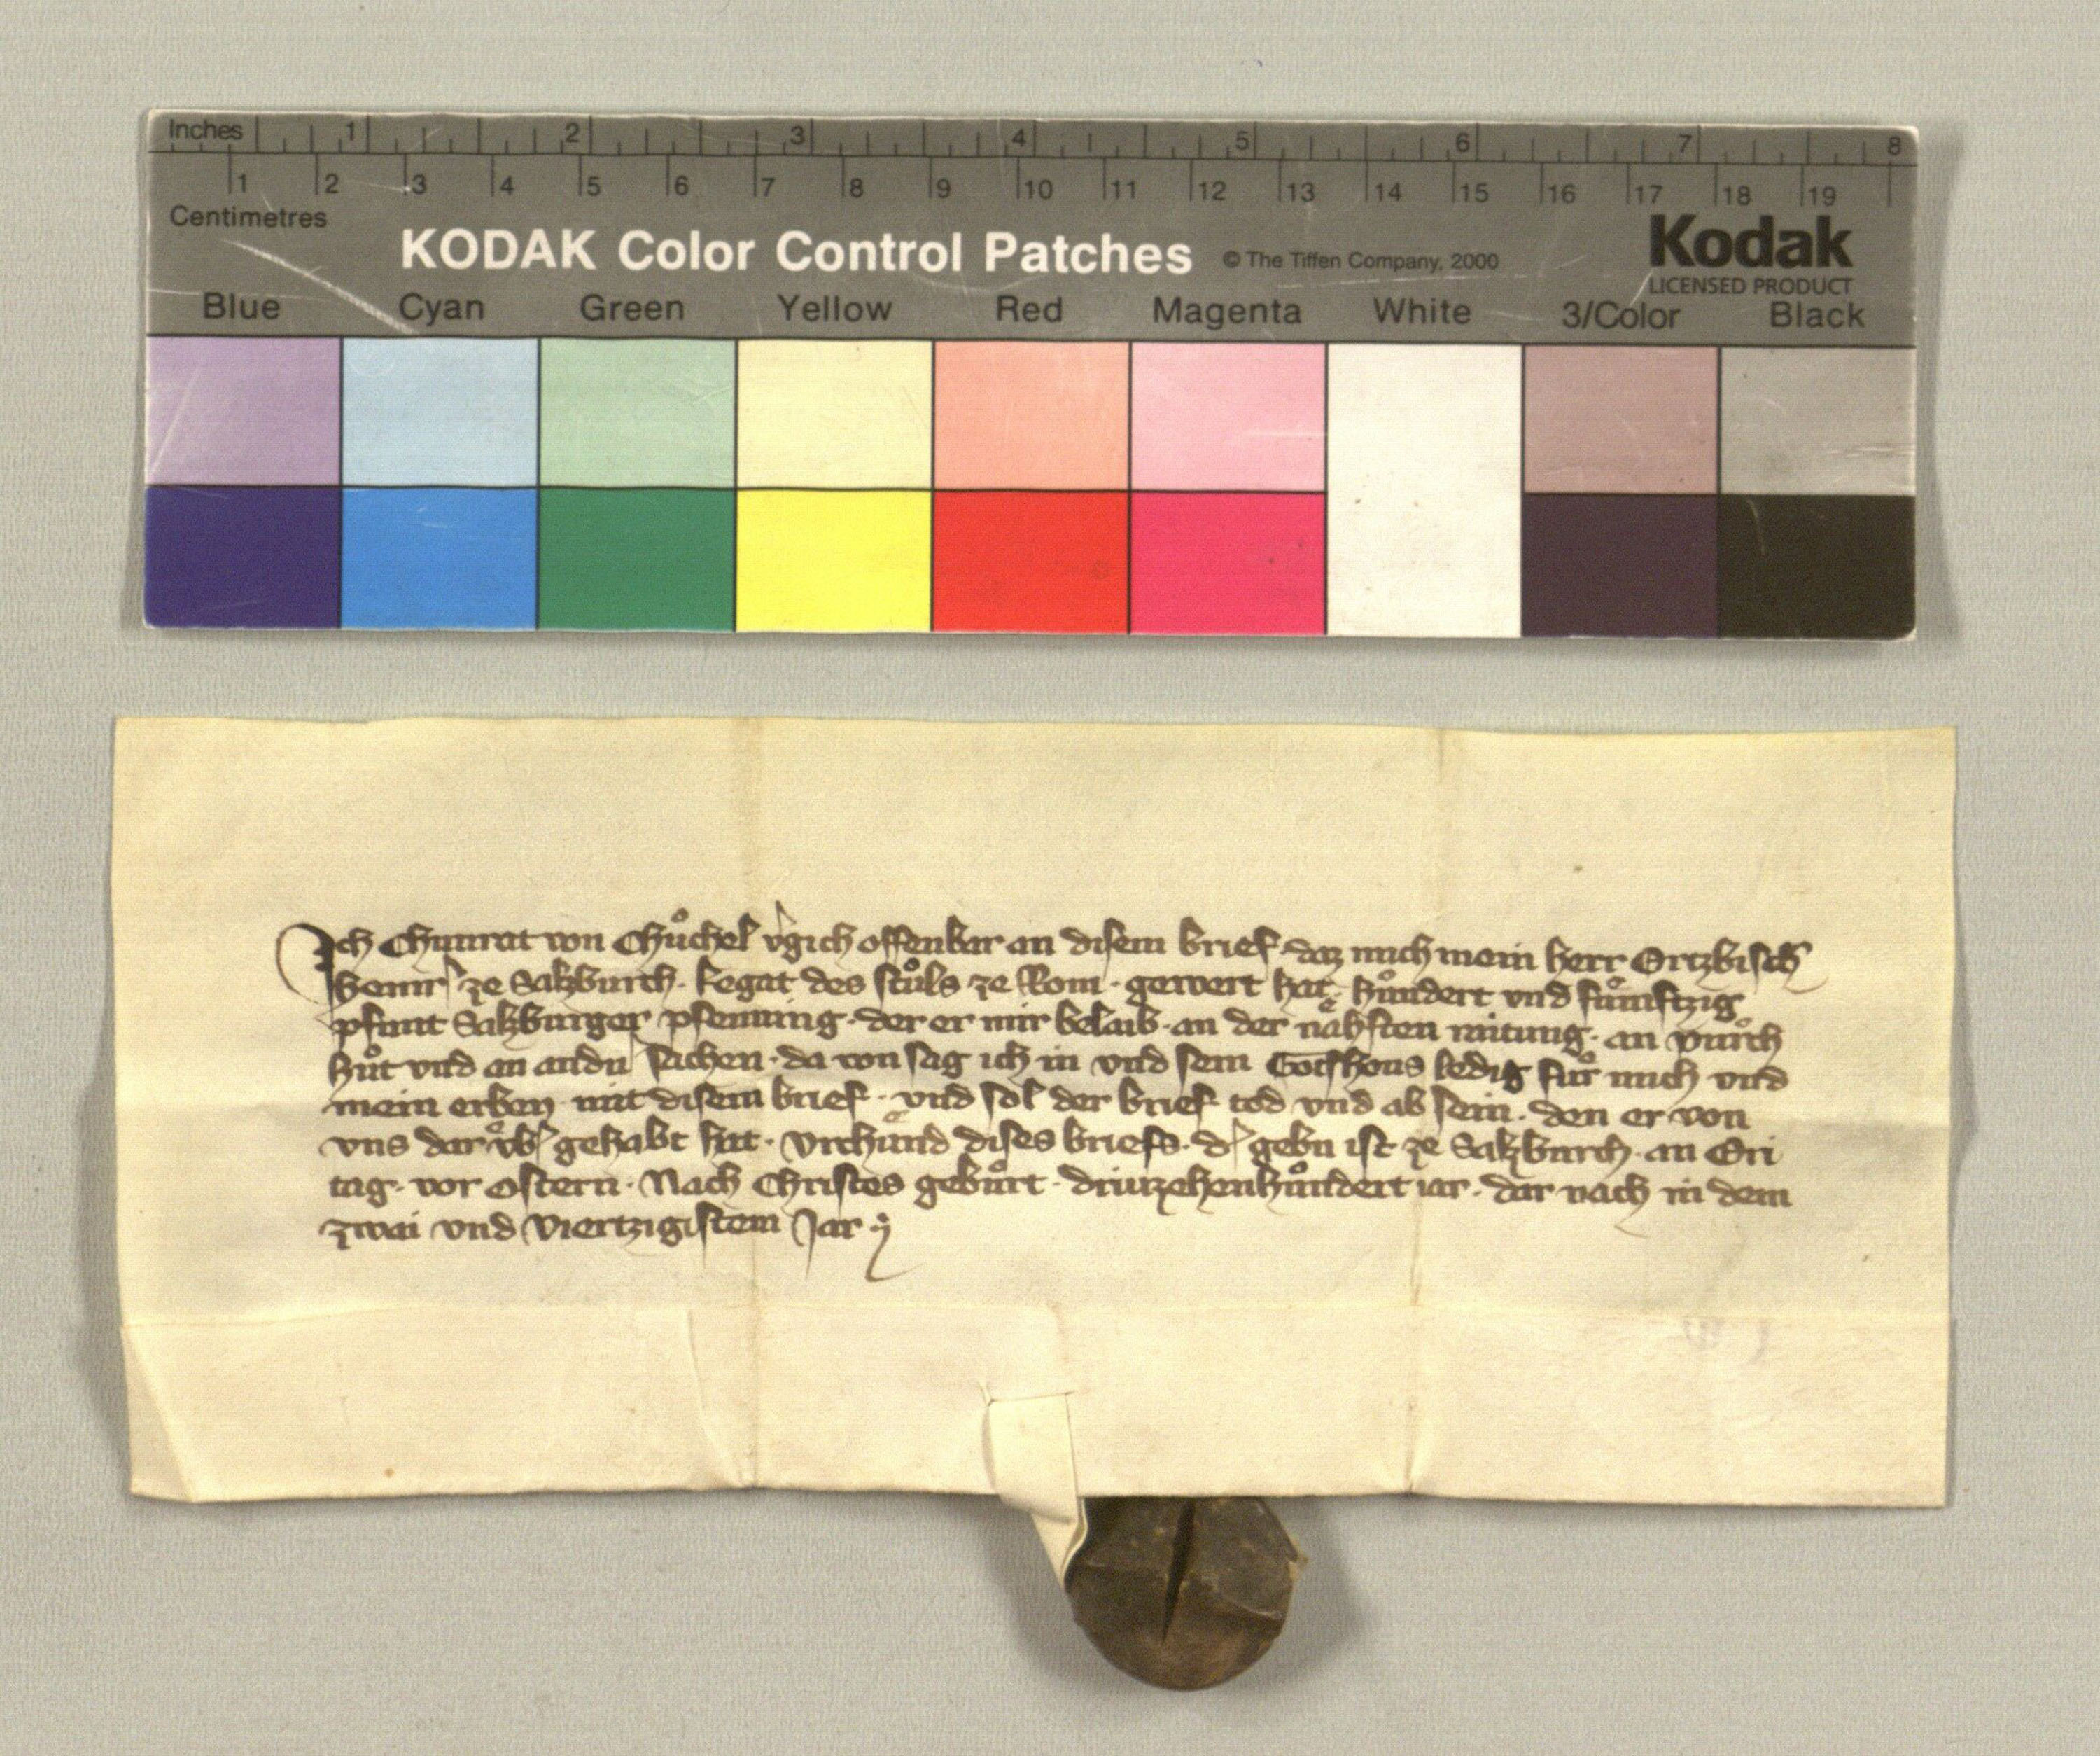 Inches 1 2 3 4 5 6 7 8
1 2 3 4 5 6 7 8 9 10 11 12 13 14 15 16 17 18 19
Centimetres
KODAK Color Control Patches © The Tiffen Company, 2000 Kodak
LICENSED PRODUCT
Blue Cyan Green Yellow Red Magenta White 3/Color Black
Ich Chunrat von Chuͦchel vʼgich offenbar an disem brief · daz mich mein herr Ertzbisch
Heinrʼ ze Salzburch · Legat des stuͦls ze Rom · gewert hat · huͦndert vnd fuͦmftzig
pfunt Salzburger pfenning · der er mir belaib · an der naͤhsten raitung · an purch
huͦt vnd an andn sachen · da von sag ich in vnd sein Gotshous ledig fuͦr mich vnd
mein erben mit disem brief · vnd sol der brief tod vnd ab sein · den er von
vns dar vͦbʼ gehabt hat · Vrchuͤnd dises briefs · dʼ gebn ist ze Salzburch · an Eri
tag · vor ostern · Nach Christes gebuͦrt · driuzehenhuͦndert iar · dar nach in dem
zwai vnd Viertzigistem Jar